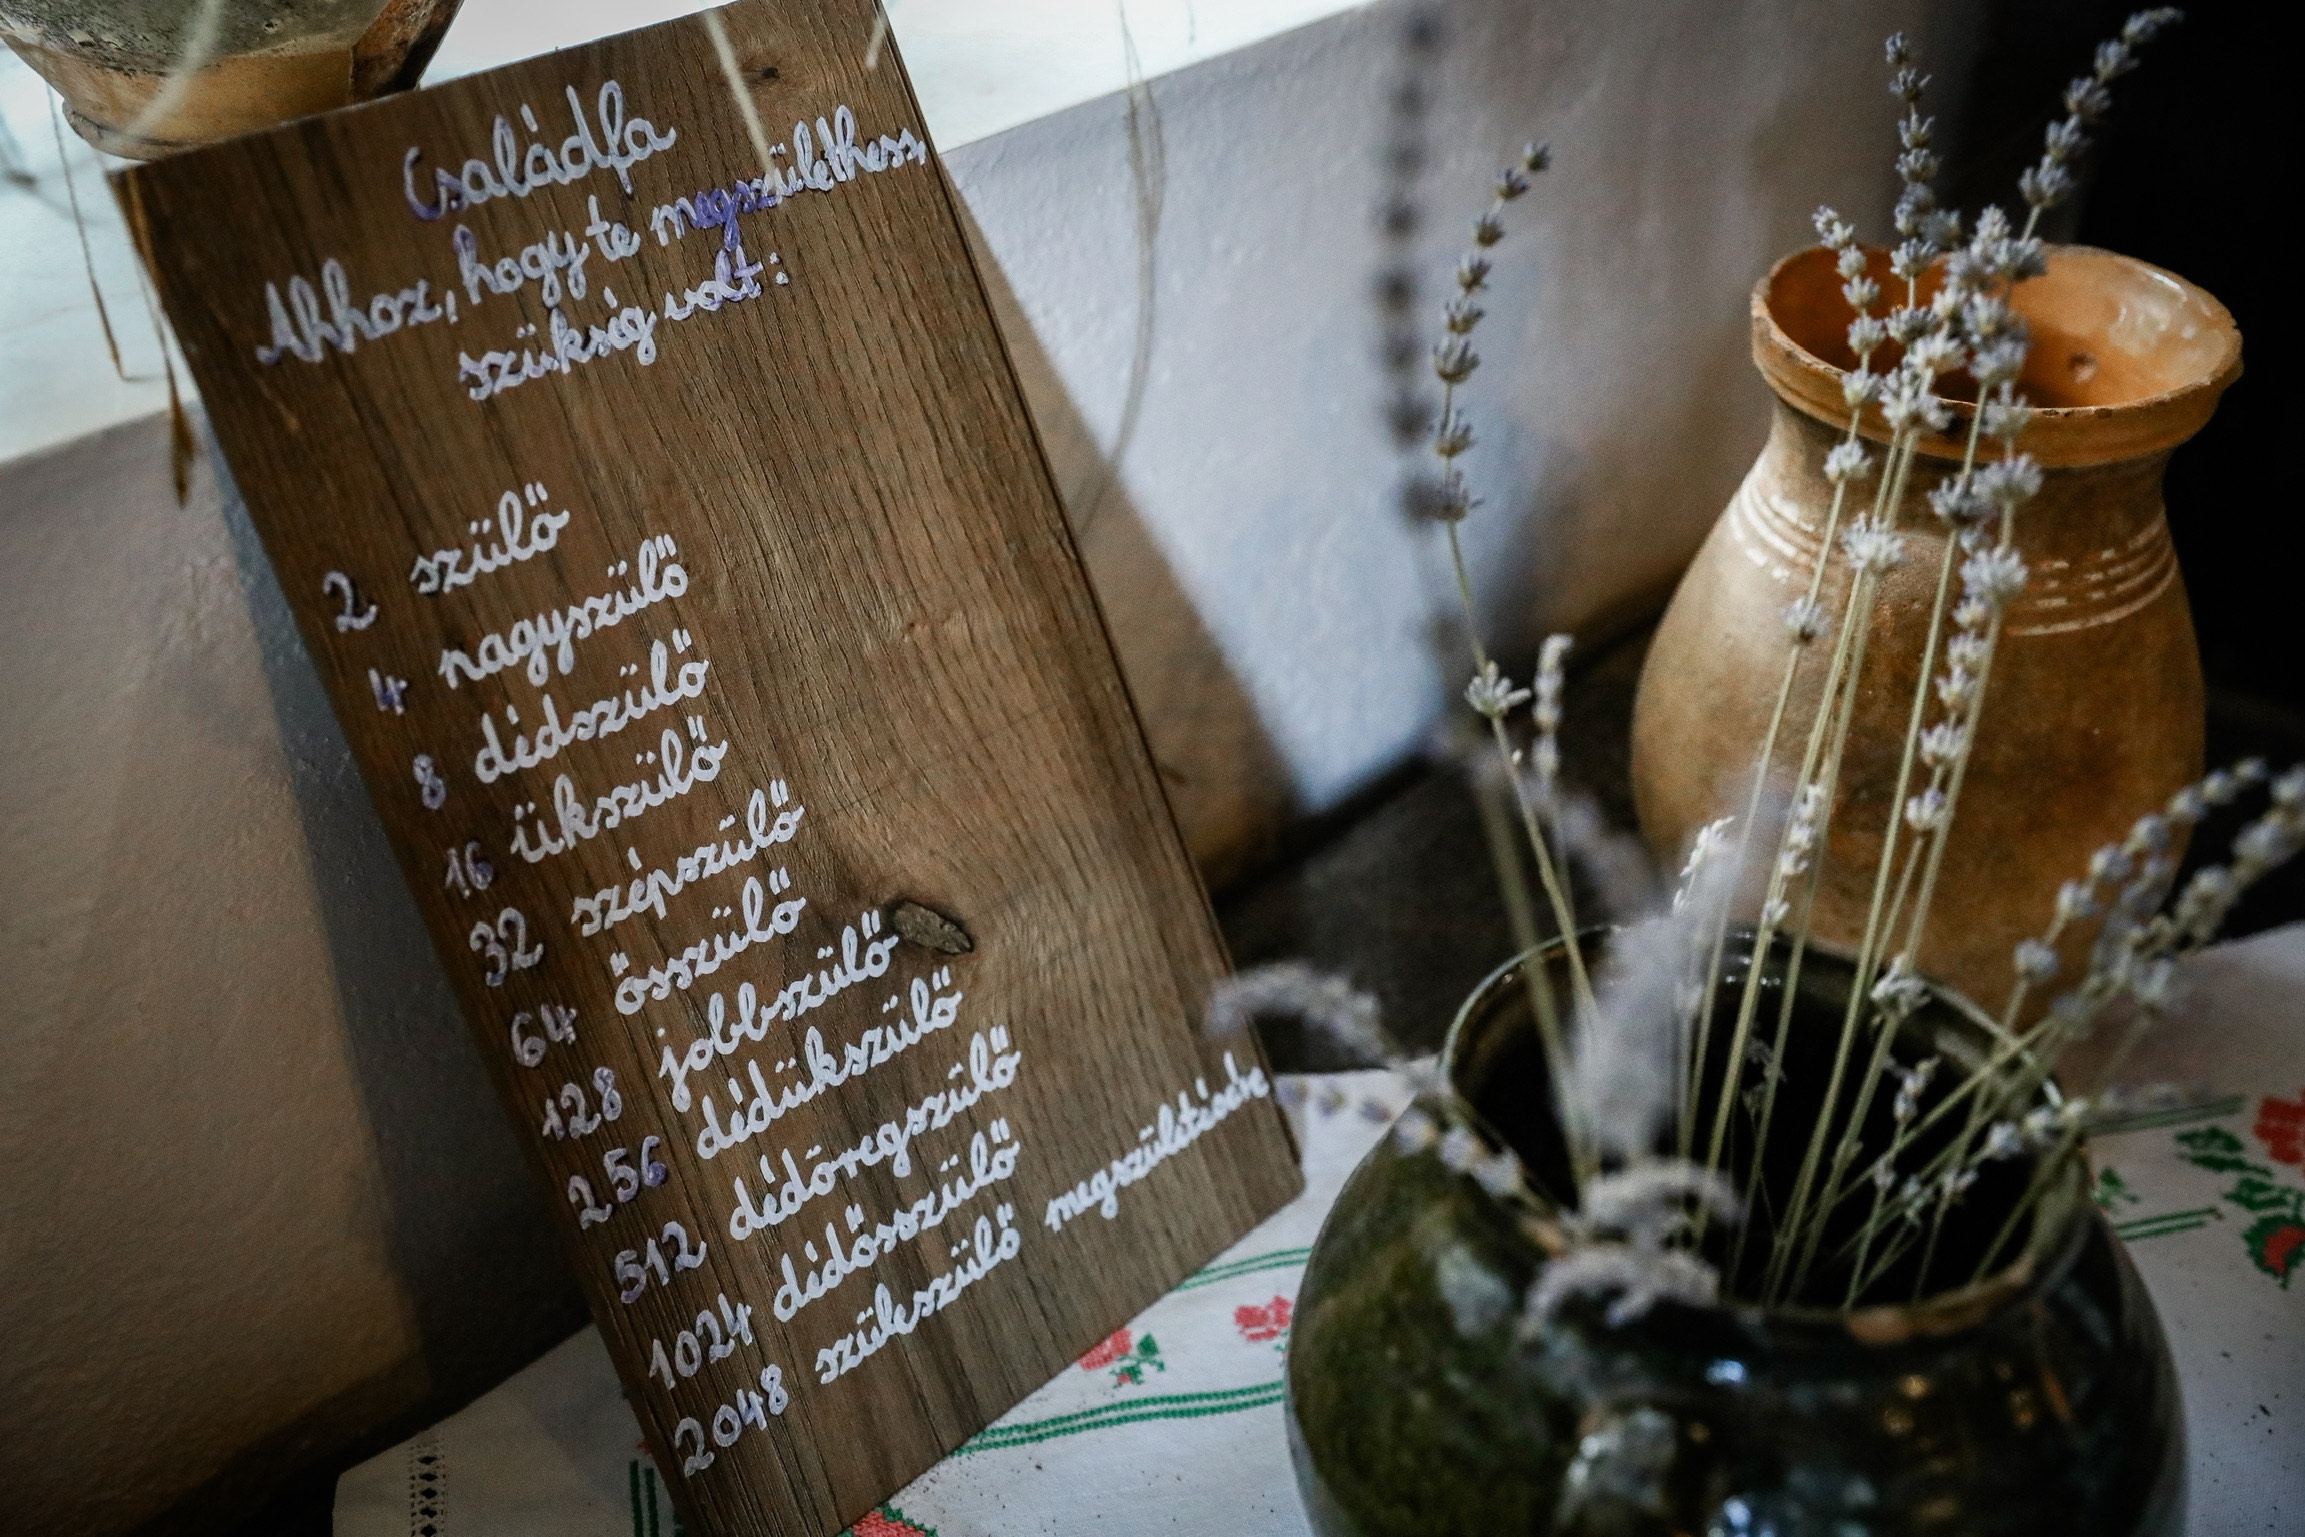 Családfa
Ahhoz, hogy te megszülethess,
szükség volt:
2 szülő
4 nagyszülő
8 dédszülő
16 ükszülő
32 szépszülő
64 ősszülő
128 jobbszülő
256 dédükszülő
512 dédöregszülő
1024 dédősszülő
2048 szükszülő megszületésébe